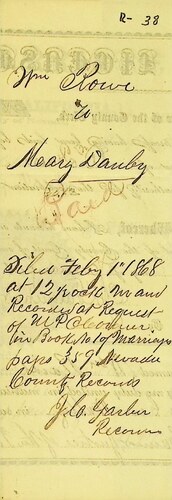 R- 38
Wm Rowe
to
Mary Danby
Paid
Filed Feby 1st 1868
at 12 o'clock M and
Recorded at Request
of
in Book No 1 of Marriages
page 359 Nevada
County Records
J. C. Garber
Recorder